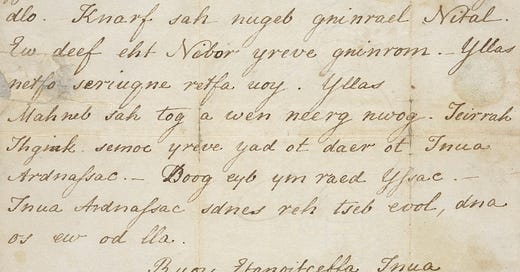 dlo. Knarf sah nugeb gninrael Nital.
Ew deef eht Nibor yreve gninrom. — Yllas
netfo seriuqne retfa uoy. Yllas
Mahneb sah tog a wen neerg nwog. Teirrah
Thgink semoc yreve yad ot daer ot Tnua
Ardnassac. — Doog eyb ym raed Yssac. —
Tnua Ardnassac sdnes reh tseb evol, dna
os ew od lla.
Ruoy Etanoitceffa Tnua